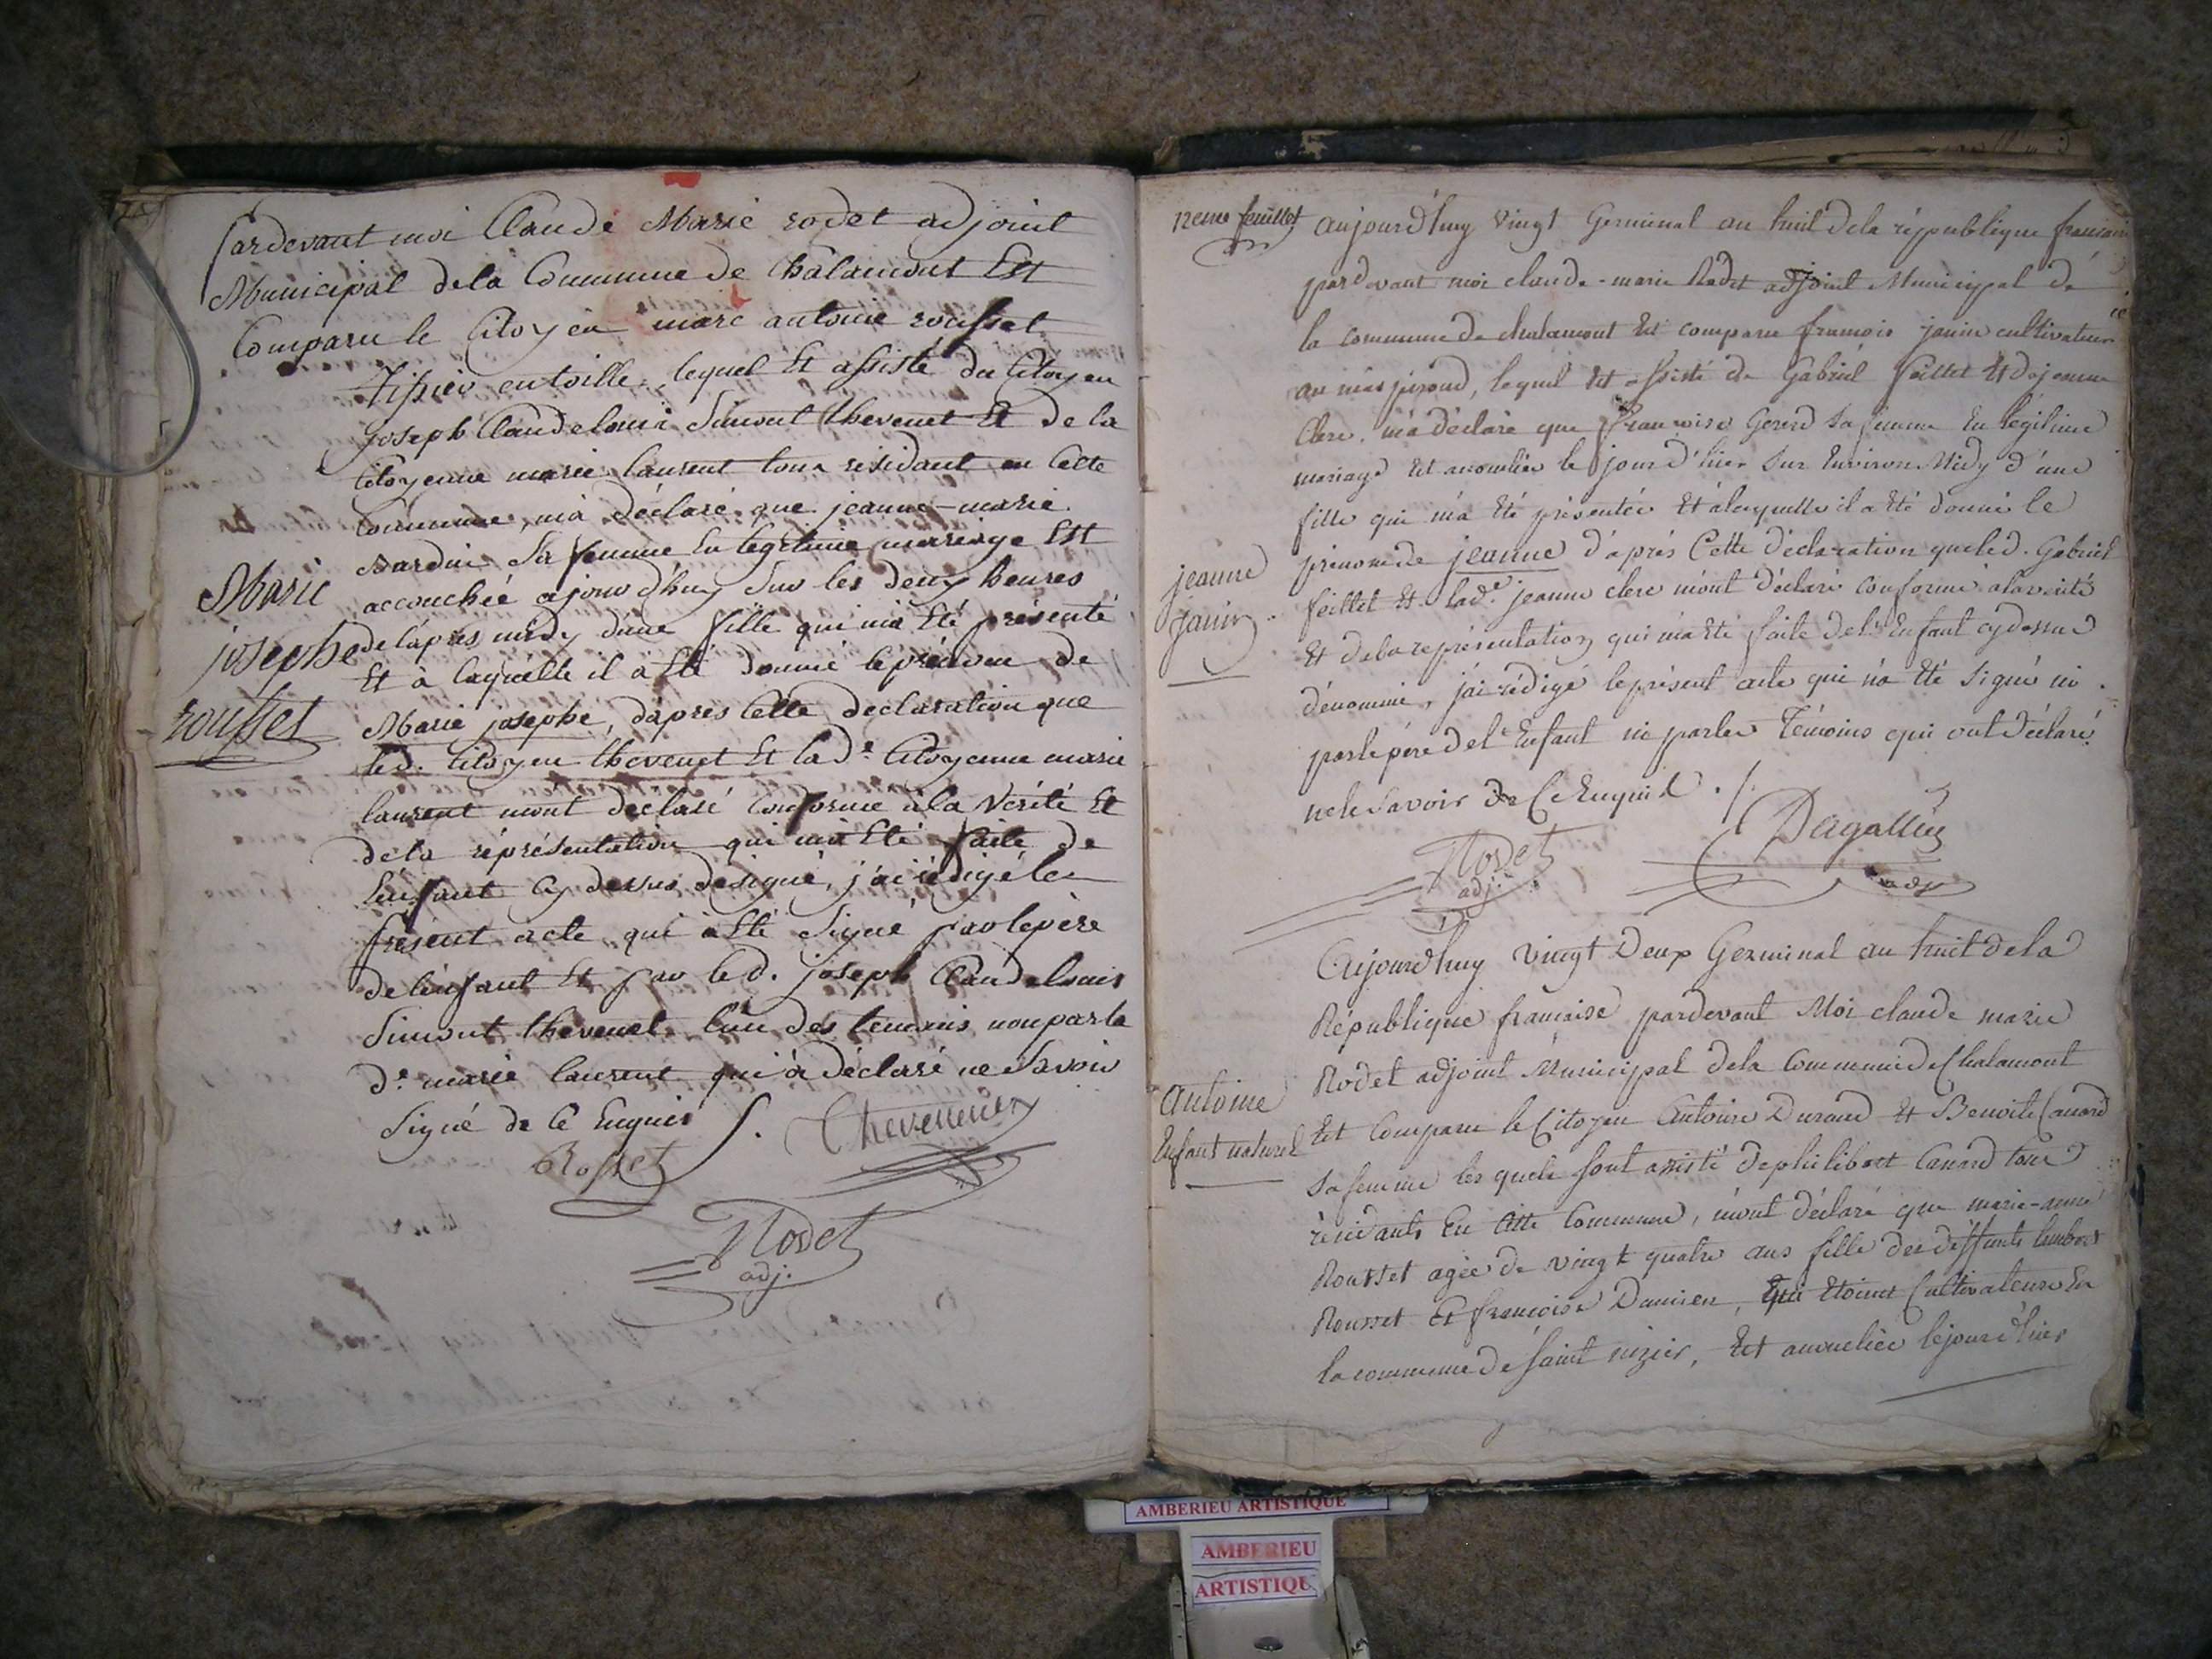 pardevant moi Claude Marie rodet adjoint
Municipal de la Commune de Chalamont Est
Comparu le Citoyen marc antoine rousset
tissier en toille, lequel Et assisté du Citoyen
joseph Claude louis Simont thevenet Et de la
Citoyenne marie laurent tous residant en Cette
Commune, m'a déclaré que jeanne-marie
sa femme En legitime mariage Est
accouchée ajourd'huy Sur les deux heures
de l'apres midy d'une fille qui m'a Eté présenté
Et à laquelle il a Eté donné le prénom de
Marie josephe, d'apres Cette declaration que
led. Citoyen thevenet Et lad.e Citoyenne marie
laurent mont declaré Conforme à la Vérité Et
de la représentation qui m'a Eté faite de
l'enfant Cy dessus designé, j'ai rédigé le
présent acte qui a Eté Signé par le père
de l'enfant Et par led. joseph Claude louis
Simont thevenet l'un des temoins non par la
d.e marie laurent qui à déclaré ne Savoir
Signé de Ce Enquis
Marie
josephe
rousset
Rosset
Thevenet
Rodet
adj.
12eme feuillet
aujourd'huy vingt Germinal an huit de la république francaise
pardevant moi claude-marie Rodet adjoint Municipal de
la commune de chalamont Est comparu francois janin cultivateur
au mas, lequel Est assisté de Gabriel feillet Et de jeanne
Clerc, m'a déclaré que francoise sa femme En légitime
mariage Est accouchée le jour d'hier Sur Environ Midy d'une
fille qui m'a Eté présentée Et à laquelle il a Eté donné le
prenom de jeanne d'après Cette déclaration que led. Gabriel
feillet Et lad.e jeanne clerc m'ont déclaré conforme à la vérité
Et de la représentation qui m'a Eté faite de l'Enfant cy dessus
dénommé, j'ai rédigé le présent acte qui n'a Eté Signé ni
par le père de l'Enfant ni par les Témoins qui ont déclaré
ne le Savoir de Ce Enquis ./.
jeanne
janin
Rodet
adj.
Dagallier
Aujourd'huy vingt Deux Germinal an huit de la
République francaise pardevant Moi claude marie
Rodet adjoint Municipal de la Commune de Chalamont
Est Comparu le Citoyen Antoine Durand Et Benoite Canard
Sa femme les quels sont assisté de philibert Canard tous
résidants En Cette Commune, m'ont déclaré que marie-anne
Rousset agée de vingt quatre ans fille des deffunts
Rousset Et francoise Damien, qui Etoient Cultivateurs En
la commune de Saint nizier, Est accouchée le jour d'hier
antoine
Enfant naturel
AMBERIEU ARTISTIQUE
AMBERIEU
ARTISTIQU